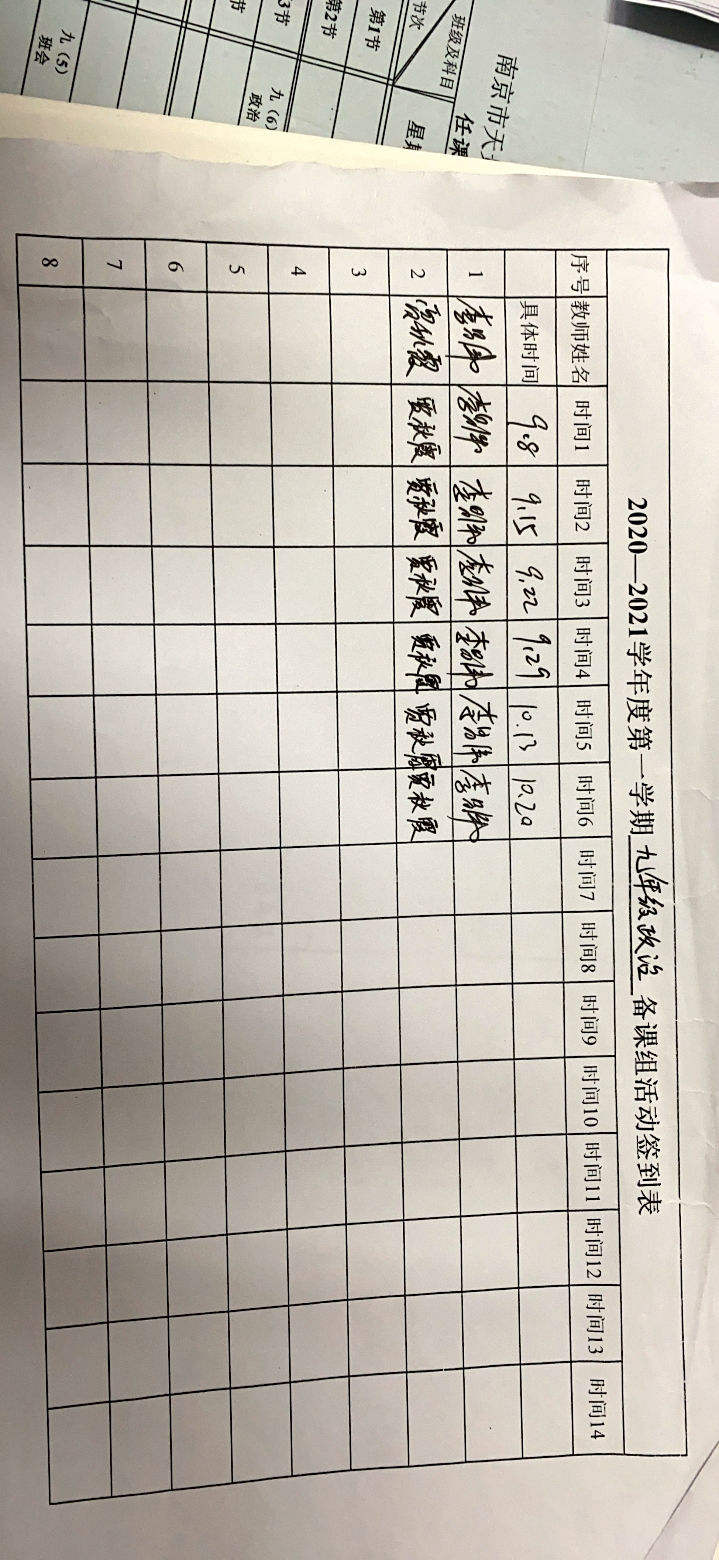 南京市天
任课
班级及科目
节次
星期
第1节
第2节
3节
九（6）
政治
节
九（5）
班会
2020—2021学年度第一学期 九年级政治 备课组活动签到表
序号 教师姓名 时间1 时间2 时间3 时间4 时间5 时间6 时间7 时间8 时间9 时间10 时间11 时间12 时间13 时间14
具体时间 9.8 9.15 9.22 9.29 10.13 10.20
1
2 贾秋霞 贾秋霞 贾秋霞 贾秋霞 贾秋霞 贾秋霞 贾秋霞
3
4
5
6
7
8